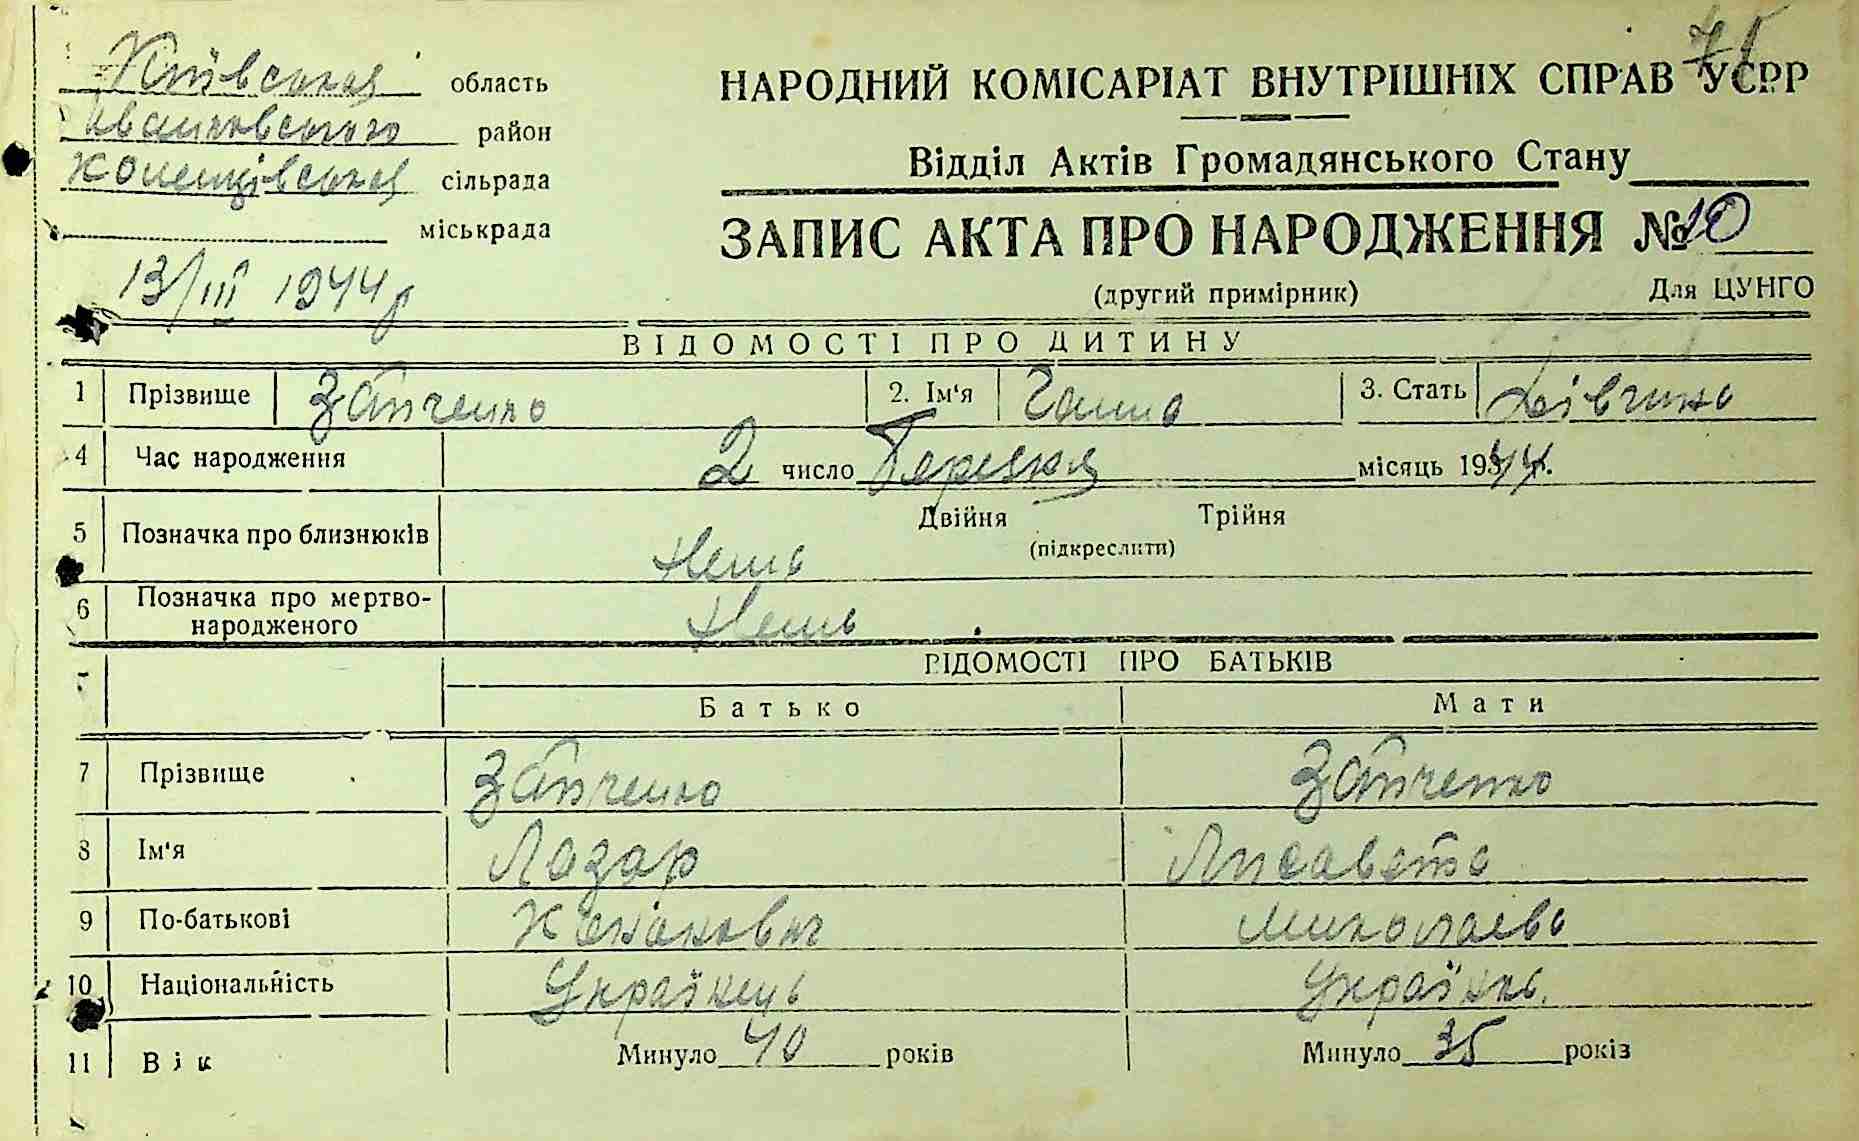 75
Київська область
Іванківського район
сільрада
міськрада
13/III 1944 р
НАРОДНИЙ КОМІСАРІАТ ВНУТРІШНІХ СПРАВ УСРР
Відділ Актів Громадянського Стану
ЗАПИС АКТА ПРО НАРОДЖЕННЯ № 10
(другий примірник) Для ЦУНГО
ВІДОМОСТІ ПРО ДИТИНУ
1 Прізвище 2. Ім'я Ганна 3. Стать Дівчина
4 Час народження 2 число Березня місяць 1944 р.
5 Позначка про близнюків Двійня Трійня
(підкреслити)
Нема
6 Позначка про мертво-
народженого Нема
ВІДОМОСТІ ПРО БАТЬКІВ
Батько Мати
7 Прізвище
8 Ім'я Лазар Лисавета
9 По-батькові Миколаєва
10 Національність Українець Українка
11 Вік Минуло 40 років Минуло 35 років